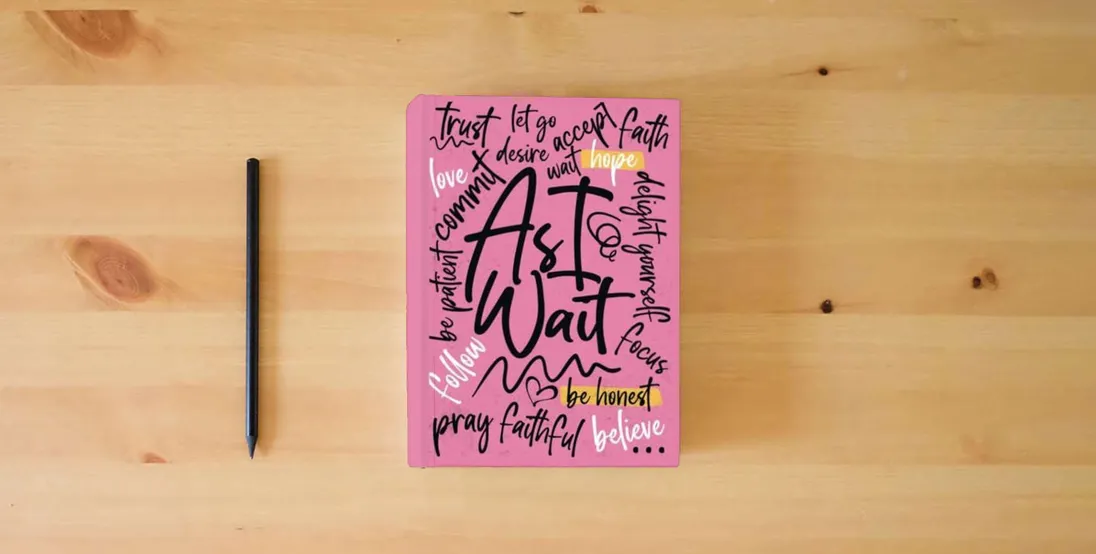 trust
let go
accept
faith
desire
wait
hope
love
commit
delight yourself
As I
Wait
be patient
focus
follow
be honest
pray faithful
believe
...